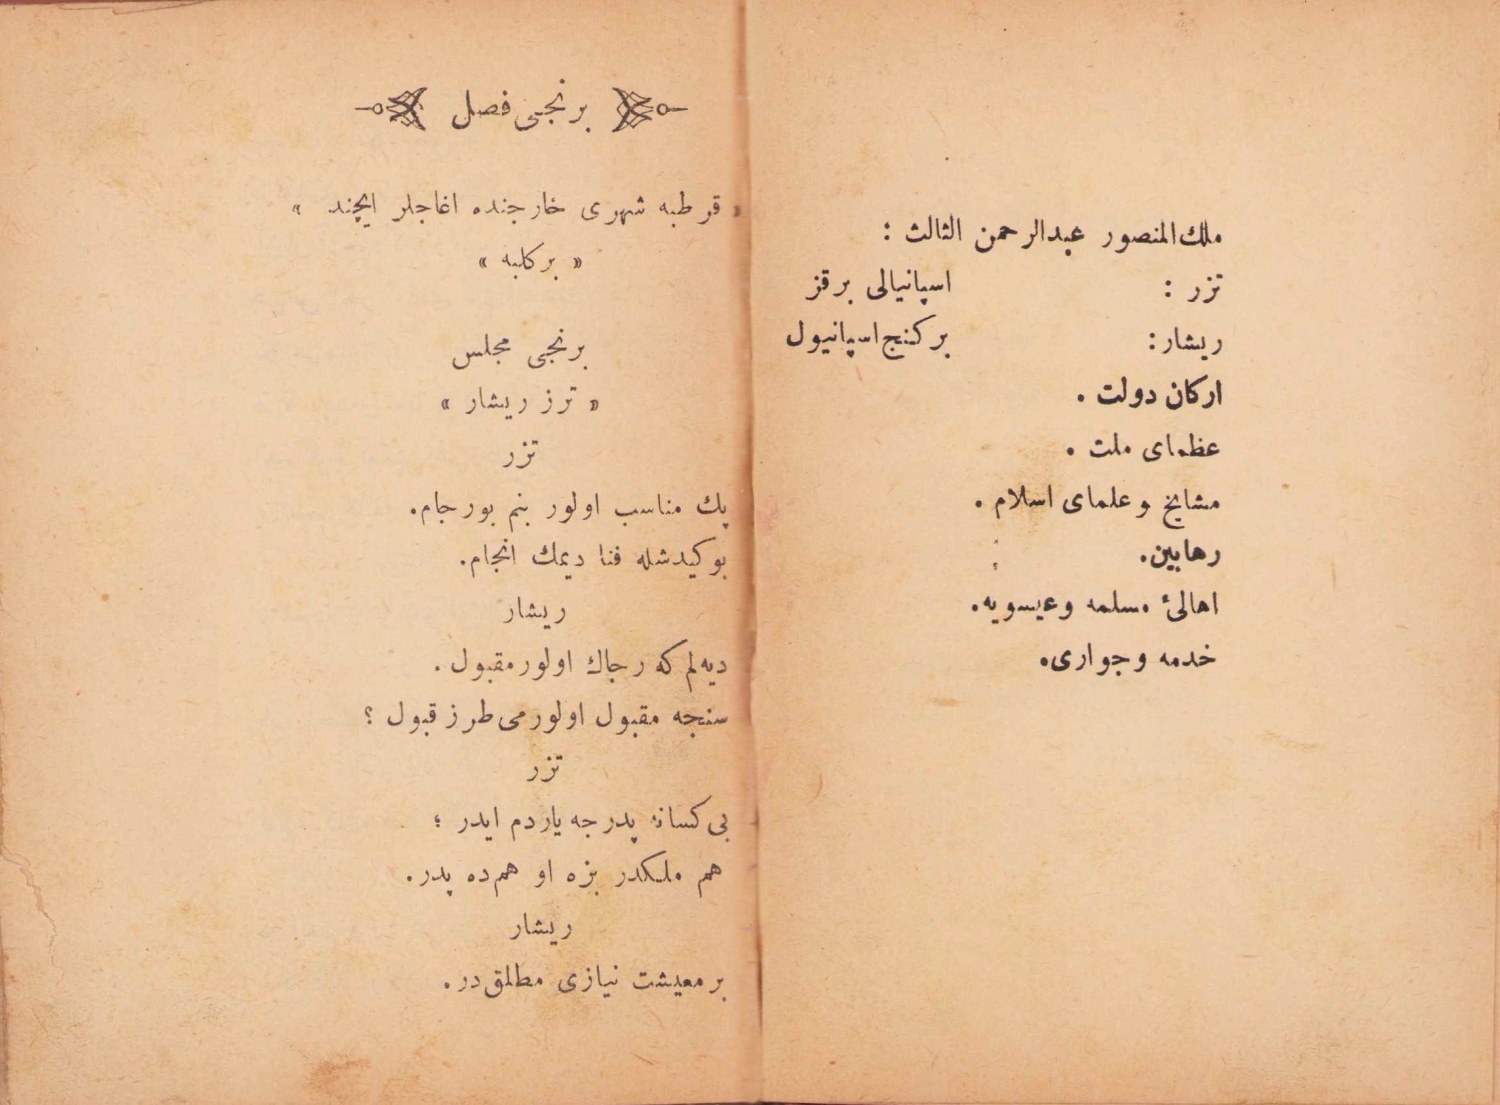 ملك‌المنصور عبدالرحمن الثالث :
تزر : اسپانيالی برقز
ريشار: بركنج اسپانيول
اركان دولت .
عظمای ملت .
مشايخ و علمای اسلام .
رهابين.
اهالیٔ مسلمه وعيسويه.
خدمه وجواری.
برنجی فصل
« قرطبه شهری خارجنده اغاجلر ايچند »
« بركلبه »
برنجی مجلس
« ترز ريشار »
تزر
پك مناسب اولور بنم بورجام.
بوكيدشله فنا ديمك انجام.
ريشار
ديه‌لم كه رجاك اولورمقبول .
سنجه مقبول اولورمی طرز قبول ؟
تزر
بی‌كسانه پدرجه ياردم ايدر ؛
هم ملكدر بزه او هم‌ده پدر.
ريشار
برمعيشت نيازی مطلق‌در.